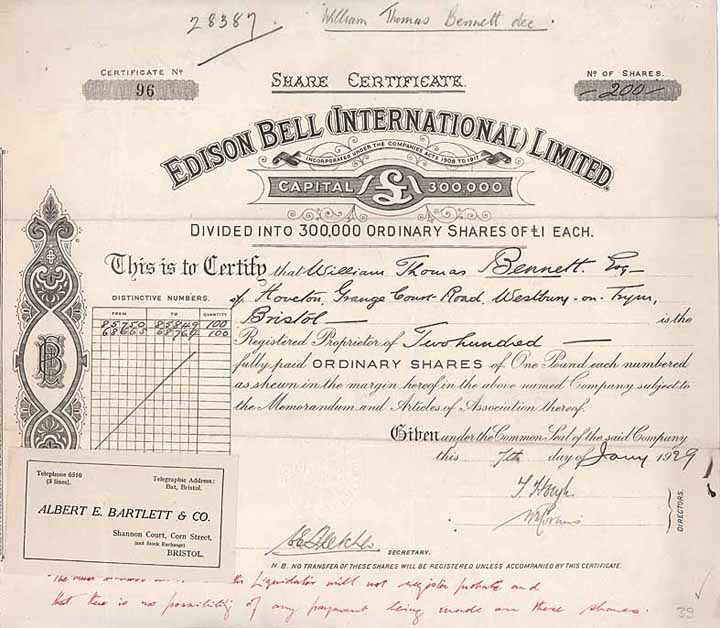 28387.
William Thomas Bennett dec.
CERTIFICATE No
96
SHARE CERTIFICATE.
No OF SHARES.
200
EDISON BELL (INTERNATIONAL) LIMITED.
INCORPORATED UNDER THE COMPANIES ACTS 1908 TO 1917
CAPITAL £ 300,000
DIVIDED INTO 300,000 ORDINARY SHARES OF £1 EACH.
This is to Certify that William Thomas Bennett. Esq
of Hoveton, Grange Court Road, Westbury-on-Trym,
Bristol is the
Registered Proprietor of Two hundred
fully paid ORDINARY SHARES of One Pound each numbered
as shewn in the margin hereof in the above named Company subject to
the Memorandum and Articles of Association thereof.
DISTINCTIVE NUMBERS.
FROM TO QUANTITY
85750 85849 100
68665 68764 100
EB
Given under the Common Seal of the said Company
this 7th day of Jany 1929
T Hough
DIRECTORS.
SECRETARY.
N.B. NO TRANSFER OF THESE SHARES WILL BE REGISTERED UNLESS ACCOMPANIED BY THIS CERTIFICATE.
Telephone 6510
(3 lines).
Telegraphic Address:
Bat, Bristol.
ALBERT E. BARTLETT & CO.
Shannon Court, Corn Street,
(and Stock Exchange)
BRISTOL.
Liquidator will not register probate and
that there is no possibility of any payment being made on these shares.
39